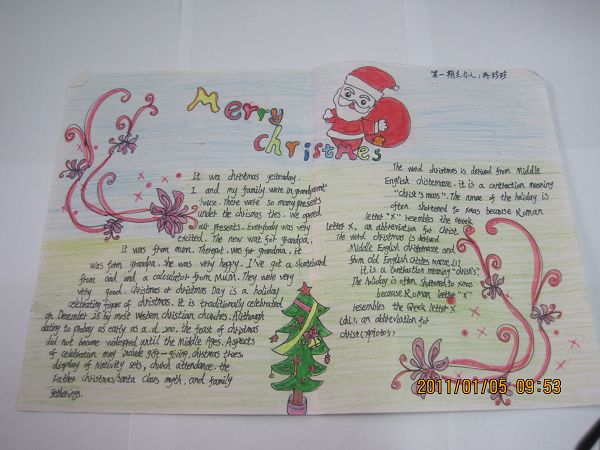 Merry
christmas
It was christmas yesterday.
I and my family were in grandparent
house. There were so many presents
under the chrismas ties. We opened
our presents. Everybody was very
excited. The new wat for grandpa,
it was from mum. There pat. was for grandma. it
was form grandpa. she was very happy. I've got a skateboard
from dad and a calculator from Mum. They were very
very good. Christmas or Christmas Day is a holiday
celebrating of christmas. it is traditionally celebrated
on December 25 by most Western christian churches. Although
dating to as early as a.d 200. the feast of christmas
did not become widespread until the Middle Ages. Aspects
of celebration may include gift-giving, christmas trees
display of Nativity sets, church attendance. the
Father christmas/Santa Claus myth, and family
gatherings.
第一期主办人:
The word christmas is derived from Middle
English christemasse. it is a contraction meaning
"christ's mass". The name of the holiday is
often shortened to xmas because Roman
letter "X" resembles the Greek
letter X, an abbreviation for christ.
The word christmas is derived
Middle English christemasse and
from old English christes mæsse.[1]
it is a contraction meaning "christ's.
The holiday is often shortened to xmas
because Roman letter "x"
resembles the Greek letter X
(chi), an abbreviation for
christ
2011/01/05 09:53